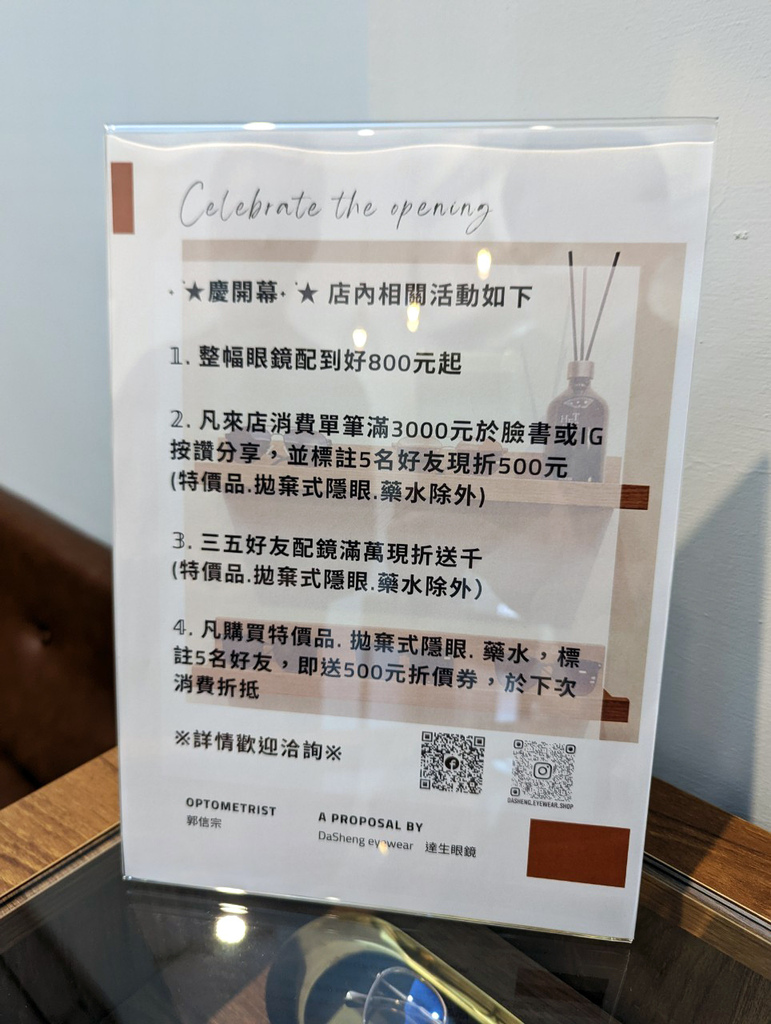 Celebrate the opening
★慶開幕 ★ 店內相關活動如下
1. 整幅眼鏡配到好800元起
2. 凡來店消費單筆滿3000元於臉書或IG
按讚分享，並標註5名好友現折500元
(特價品.拋棄式隱眼.藥水除外)
3. 三五好友配鏡滿萬現折送千
(特價品.拋棄式隱眼.藥水除外)
4. 凡購買特價品. 拋棄式隱眼. 藥水，標
註5名好友，即送500元折價券，於下次
消費折抵
※詳情歡迎洽詢※
DASHENG.EYEWEAR.SHOP
OPTOMETRIST
郭信宗
A PROPOSAL BY
DaSheng eyewear 達生眼鏡